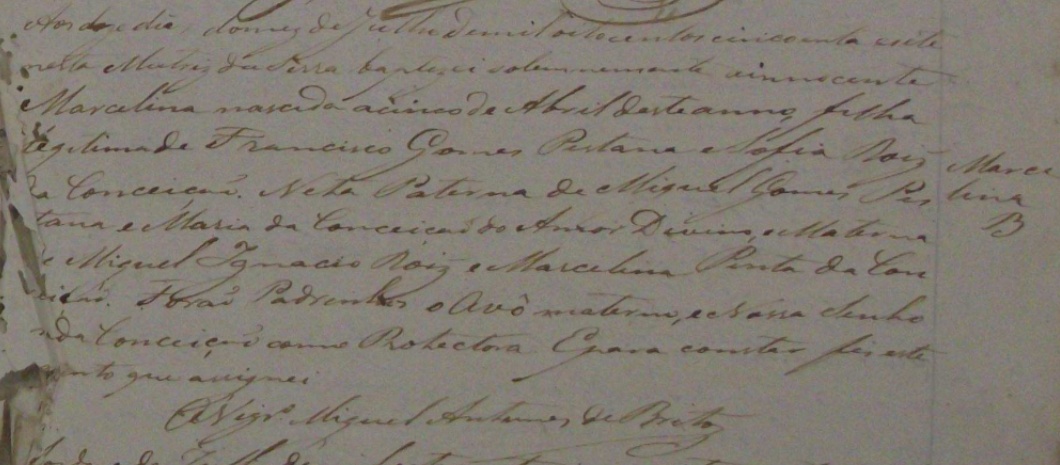 Aos doze dias do mez de Julho de mil oitocentos cincoenta e sete
nesta Matriz da Serra baptizei solemnemente a innocente
Marcelina nascida a cinco de Abril deste anno, filha
legitima de Francisco Gomes Pestana e Sofia Roiz
da Conceiçaõ. Neta Paterna de Miguel Gomes Pes
tana e Maria da Conceiçaõ do Amor Divino, e Materna
de Miguel Ignacio Roiz e Marcelina Pinta da Con
ceiçaõ. Foraõ Padrinhos o Avô materno, e Nossa Senho
ra da Conceiçaõ como Protectora E para constar fis este
assento que assignei
O Vigrº Miguel Antunes de Brito
Marce
lina
B